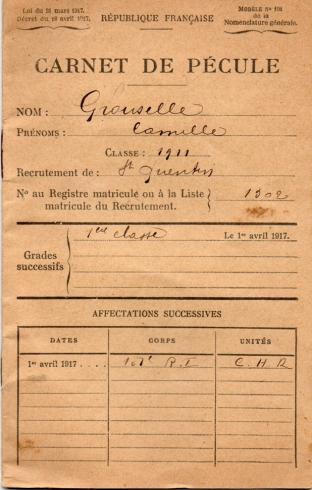 Loi du 31 mars 1917.
Décret du 18 avril 1917.
RÉPUBLIQUE FRANÇAISE
MODÈLE N° 108
de la
Nomenclature générale.
CARNET DE PÉCULE
NOM : Grouselle
PRÉNOMS : Camille
CLASSE : 1911
Recrutement de : St Quentin
N° au Registre matricule ou à la Liste
matricule du Recrutement. } 1302
Grades
successifs
1ère classe Le 1er avril 1917.
AFFECTATIONS SUCCESSIVES
DATES CORPS UNITÉS
1er avril 1917 .... R. I C. H. R